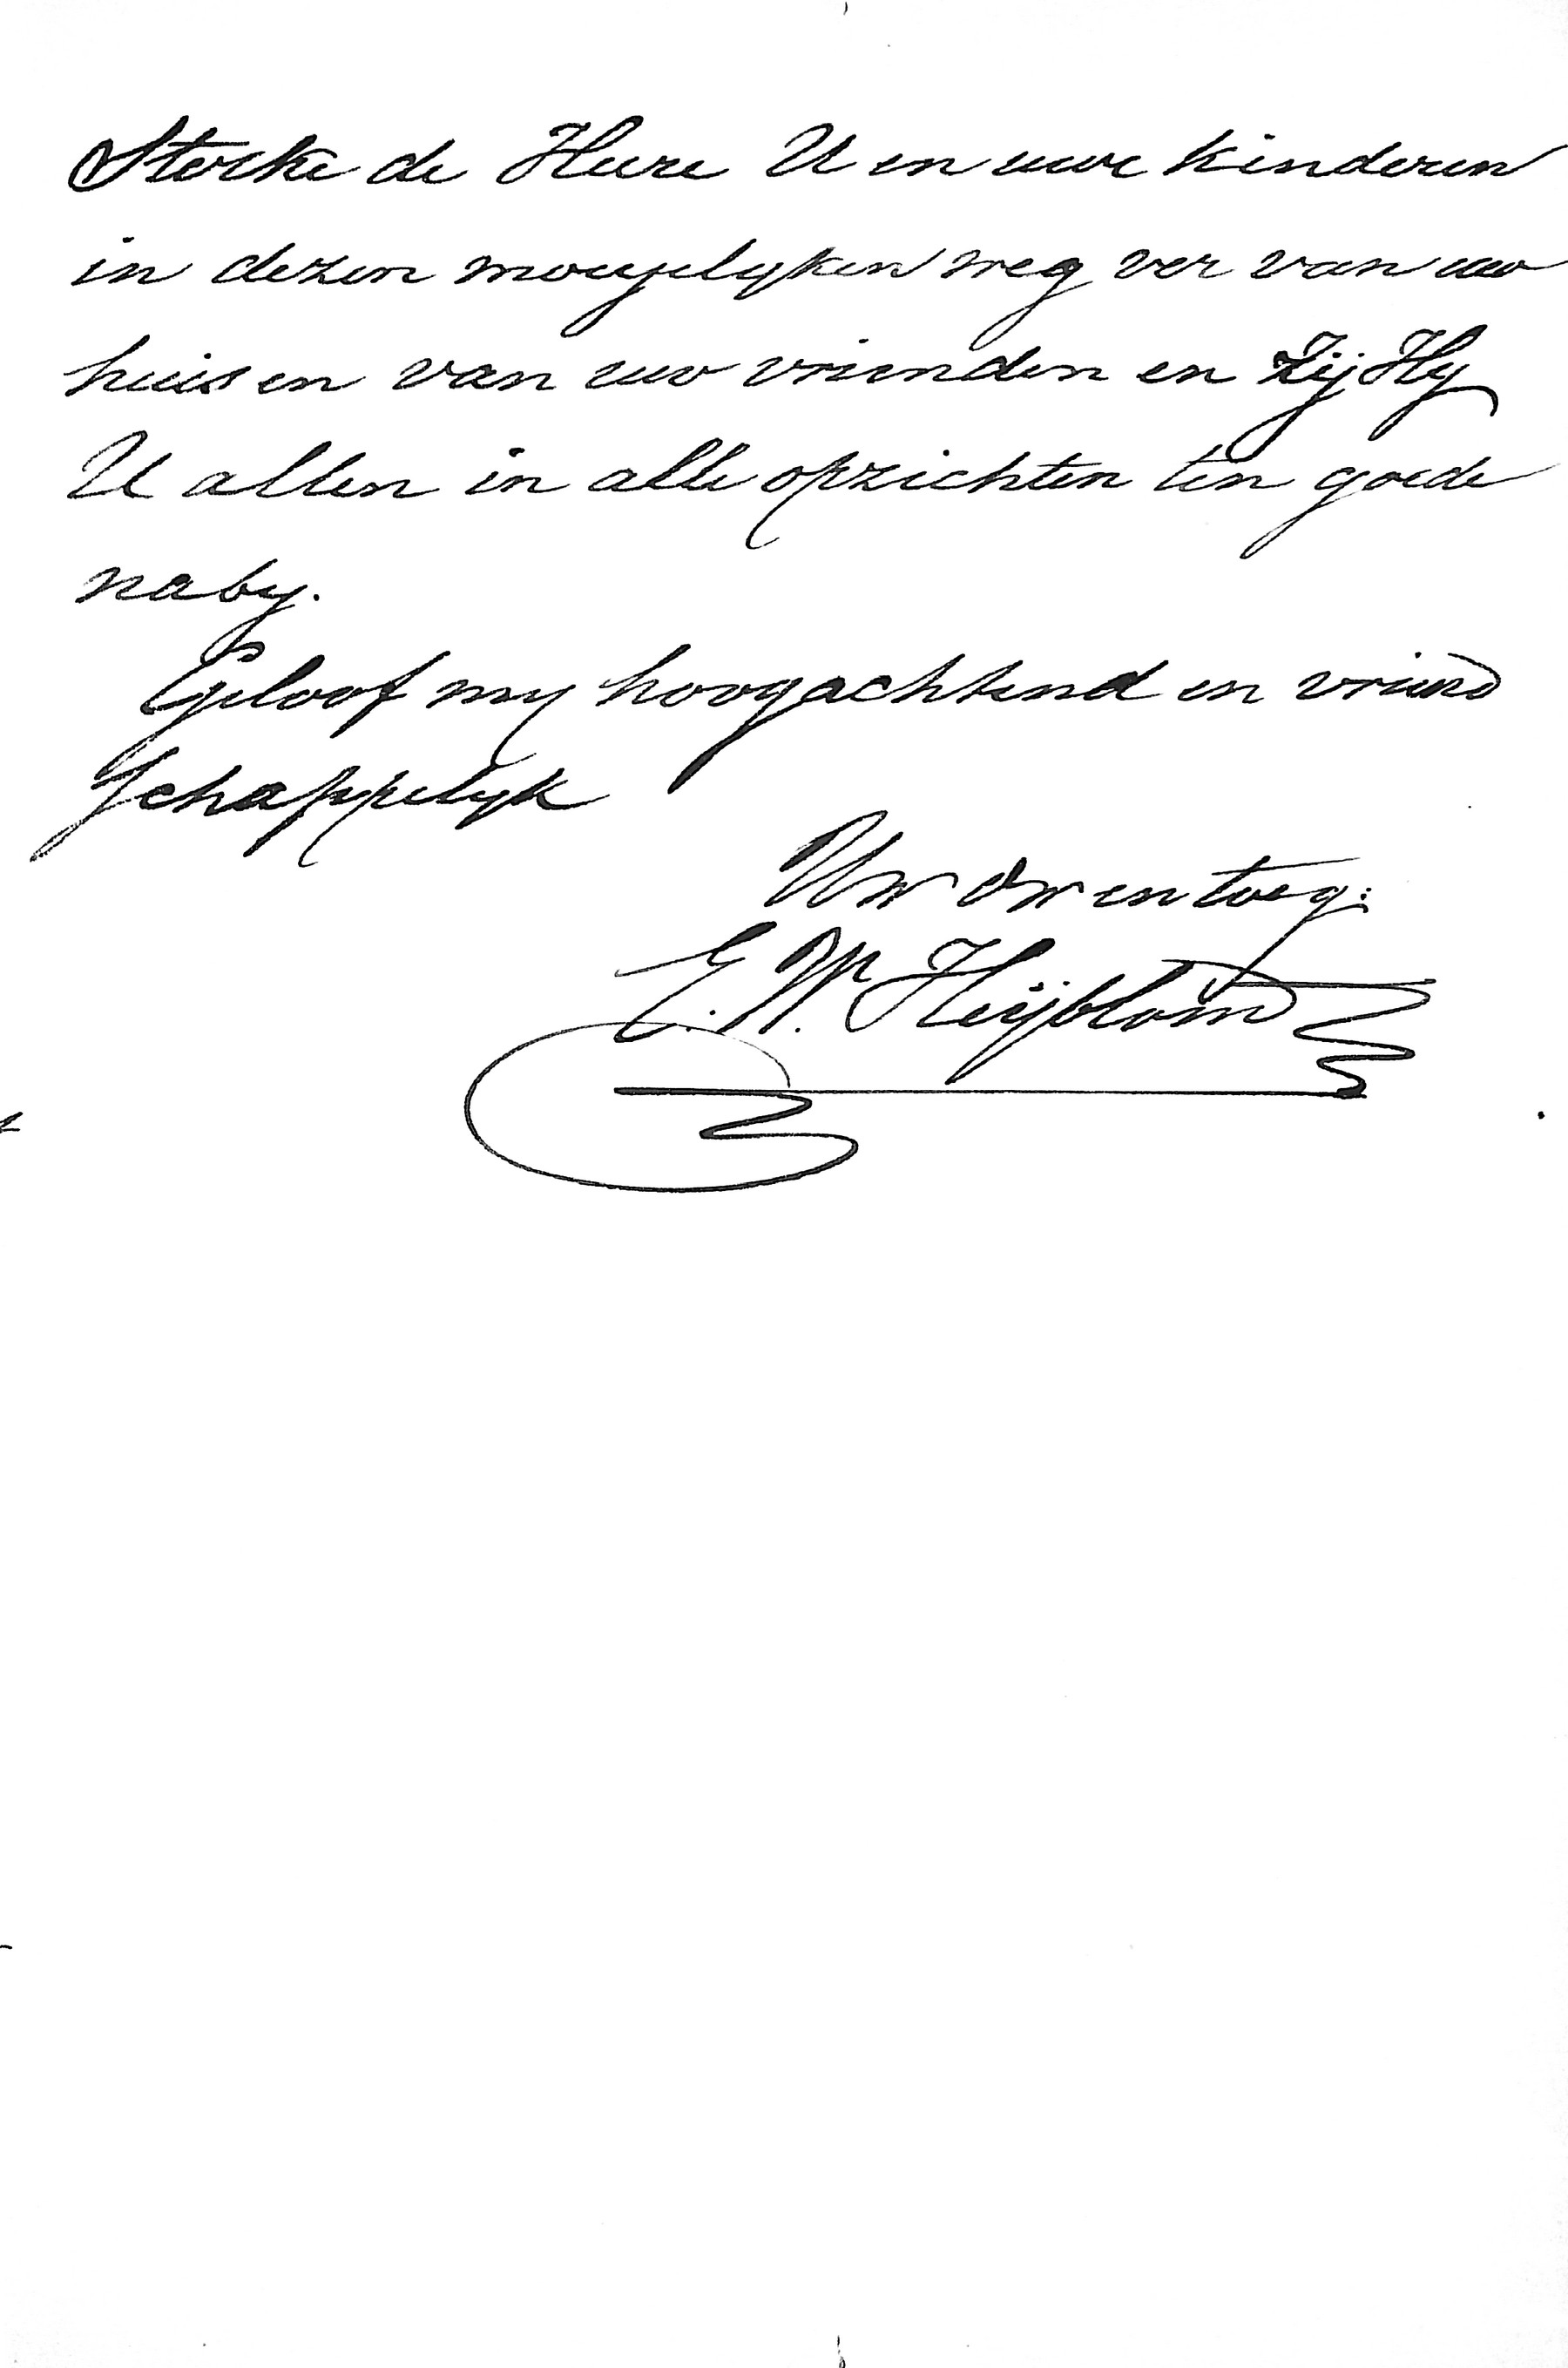 Sterke de Heere U en uwe kinderen
in dezen moeyelyken weg ver van uw
huis en van uw vrienden en zij Hy
U allen in alle opzichten ten goede
naby.
Geloof my hoogachtend en vriend
schappelyk
Uw dw en toeg:
E. W. Heijblom